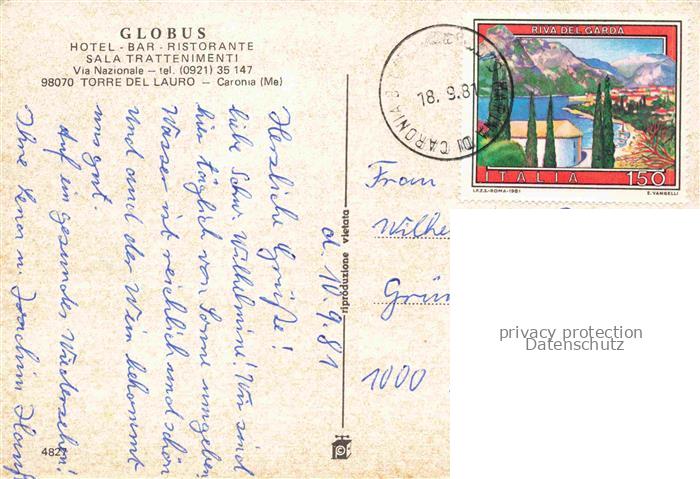 GLOBUS
HOTEL - BAR - RISTORANTE
SALA TRATTENIMENTI
Via Nazionale — tel. (0921) 35 147
98070 TORRE DEL LAURO — Caronia (Me)
RIVA DEL GARDA
ITALIA 150
I.P.Z.S.-ROMA-1981 E. VANGELLI
18. 9.81
DI CARONIA
d. 10.9.81
Herzliche Grüße!
liebe Schw. Wilhelmine! Wir sind
hier täglich von Sonne umgeben
Wasser ist reichlich und schön
Und auch der Wein bekommt
uns gut.
Auf ein gesundes Wiedersehen!
Ihre Lena u. Joachim
riproduzione vietata
4827
Frau
Wilhe
Grün
1000
privacy protection
Datenschutz